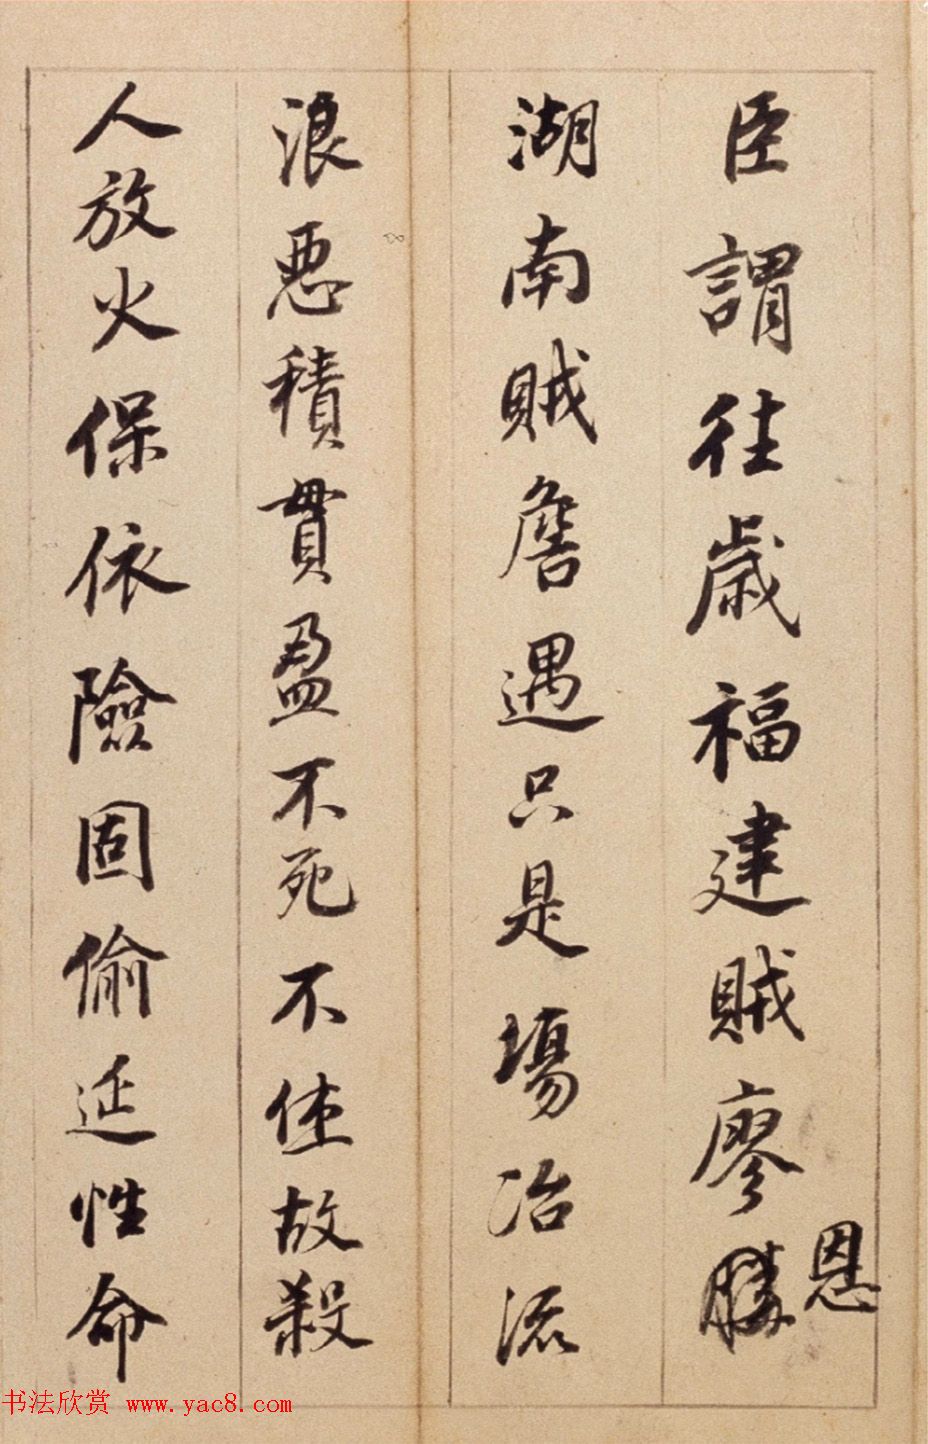 臣謂往歲福建賊廖勝恩
湖南賊詹遇只是場冶流
浪惡積貫盈不死不住故殺
人放火保依險固偷延性命
书法欣赏 www.yac8.com